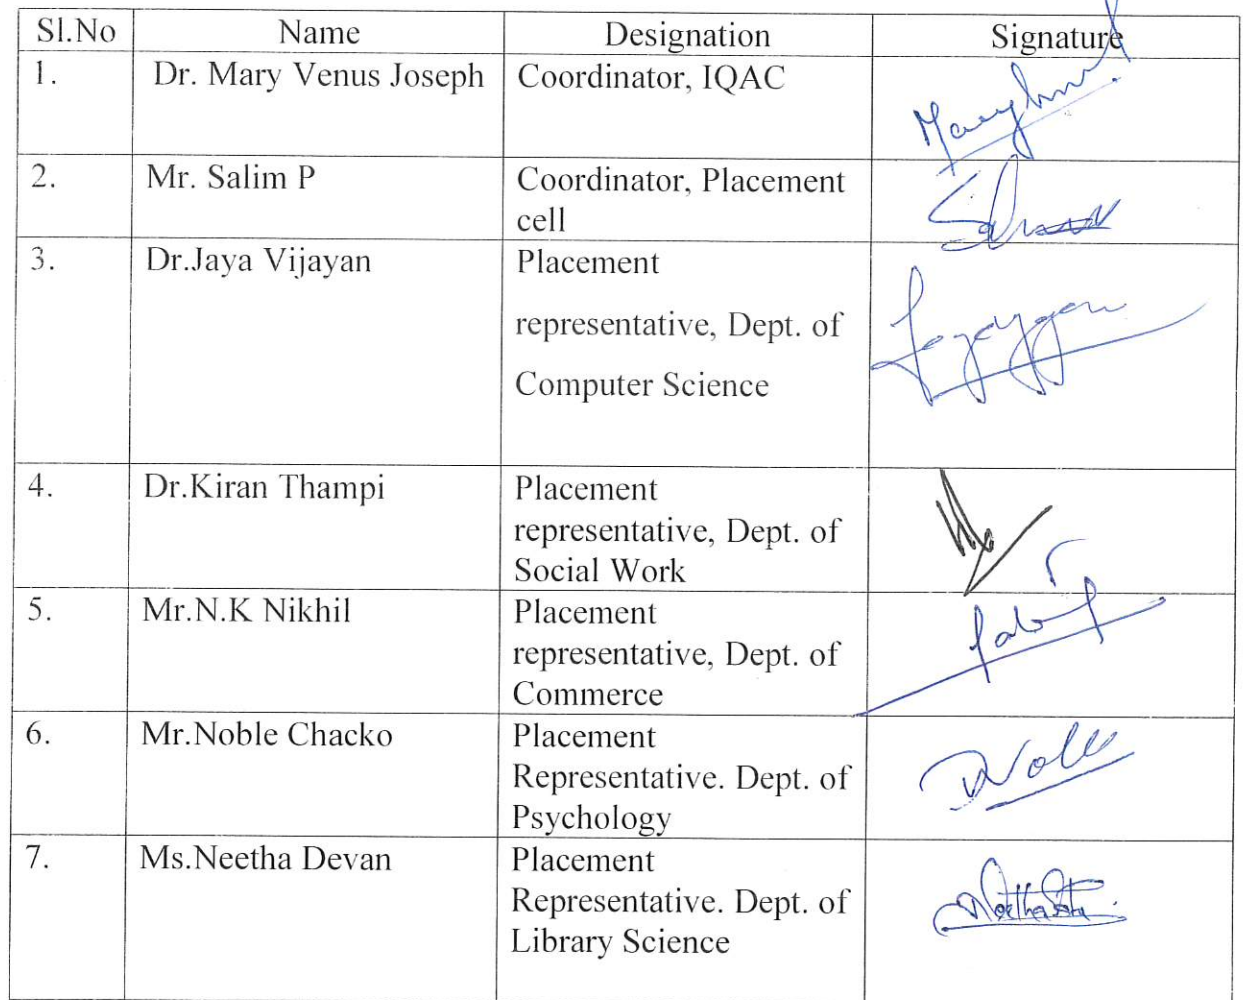 Sl.No Name Designation Signature
1. Dr. Mary Venus Joseph Coordinator, IQAC
2. Mr. Salim P Coordinator, Placement
cell
3. Dr.Jaya Vijayan Placement
representative, Dept. of
Computer Science
4. Dr.Kiran Thampi Placement
representative, Dept. of
Social Work
5. Mr.N.K Nikhil Placement
representative, Dept. of
Commerce
6. Mr.Noble Chacko Placement
Representative. Dept. of
Psychology
7. Ms.Neetha Devan Placement
Representative. Dept. of
Library Science